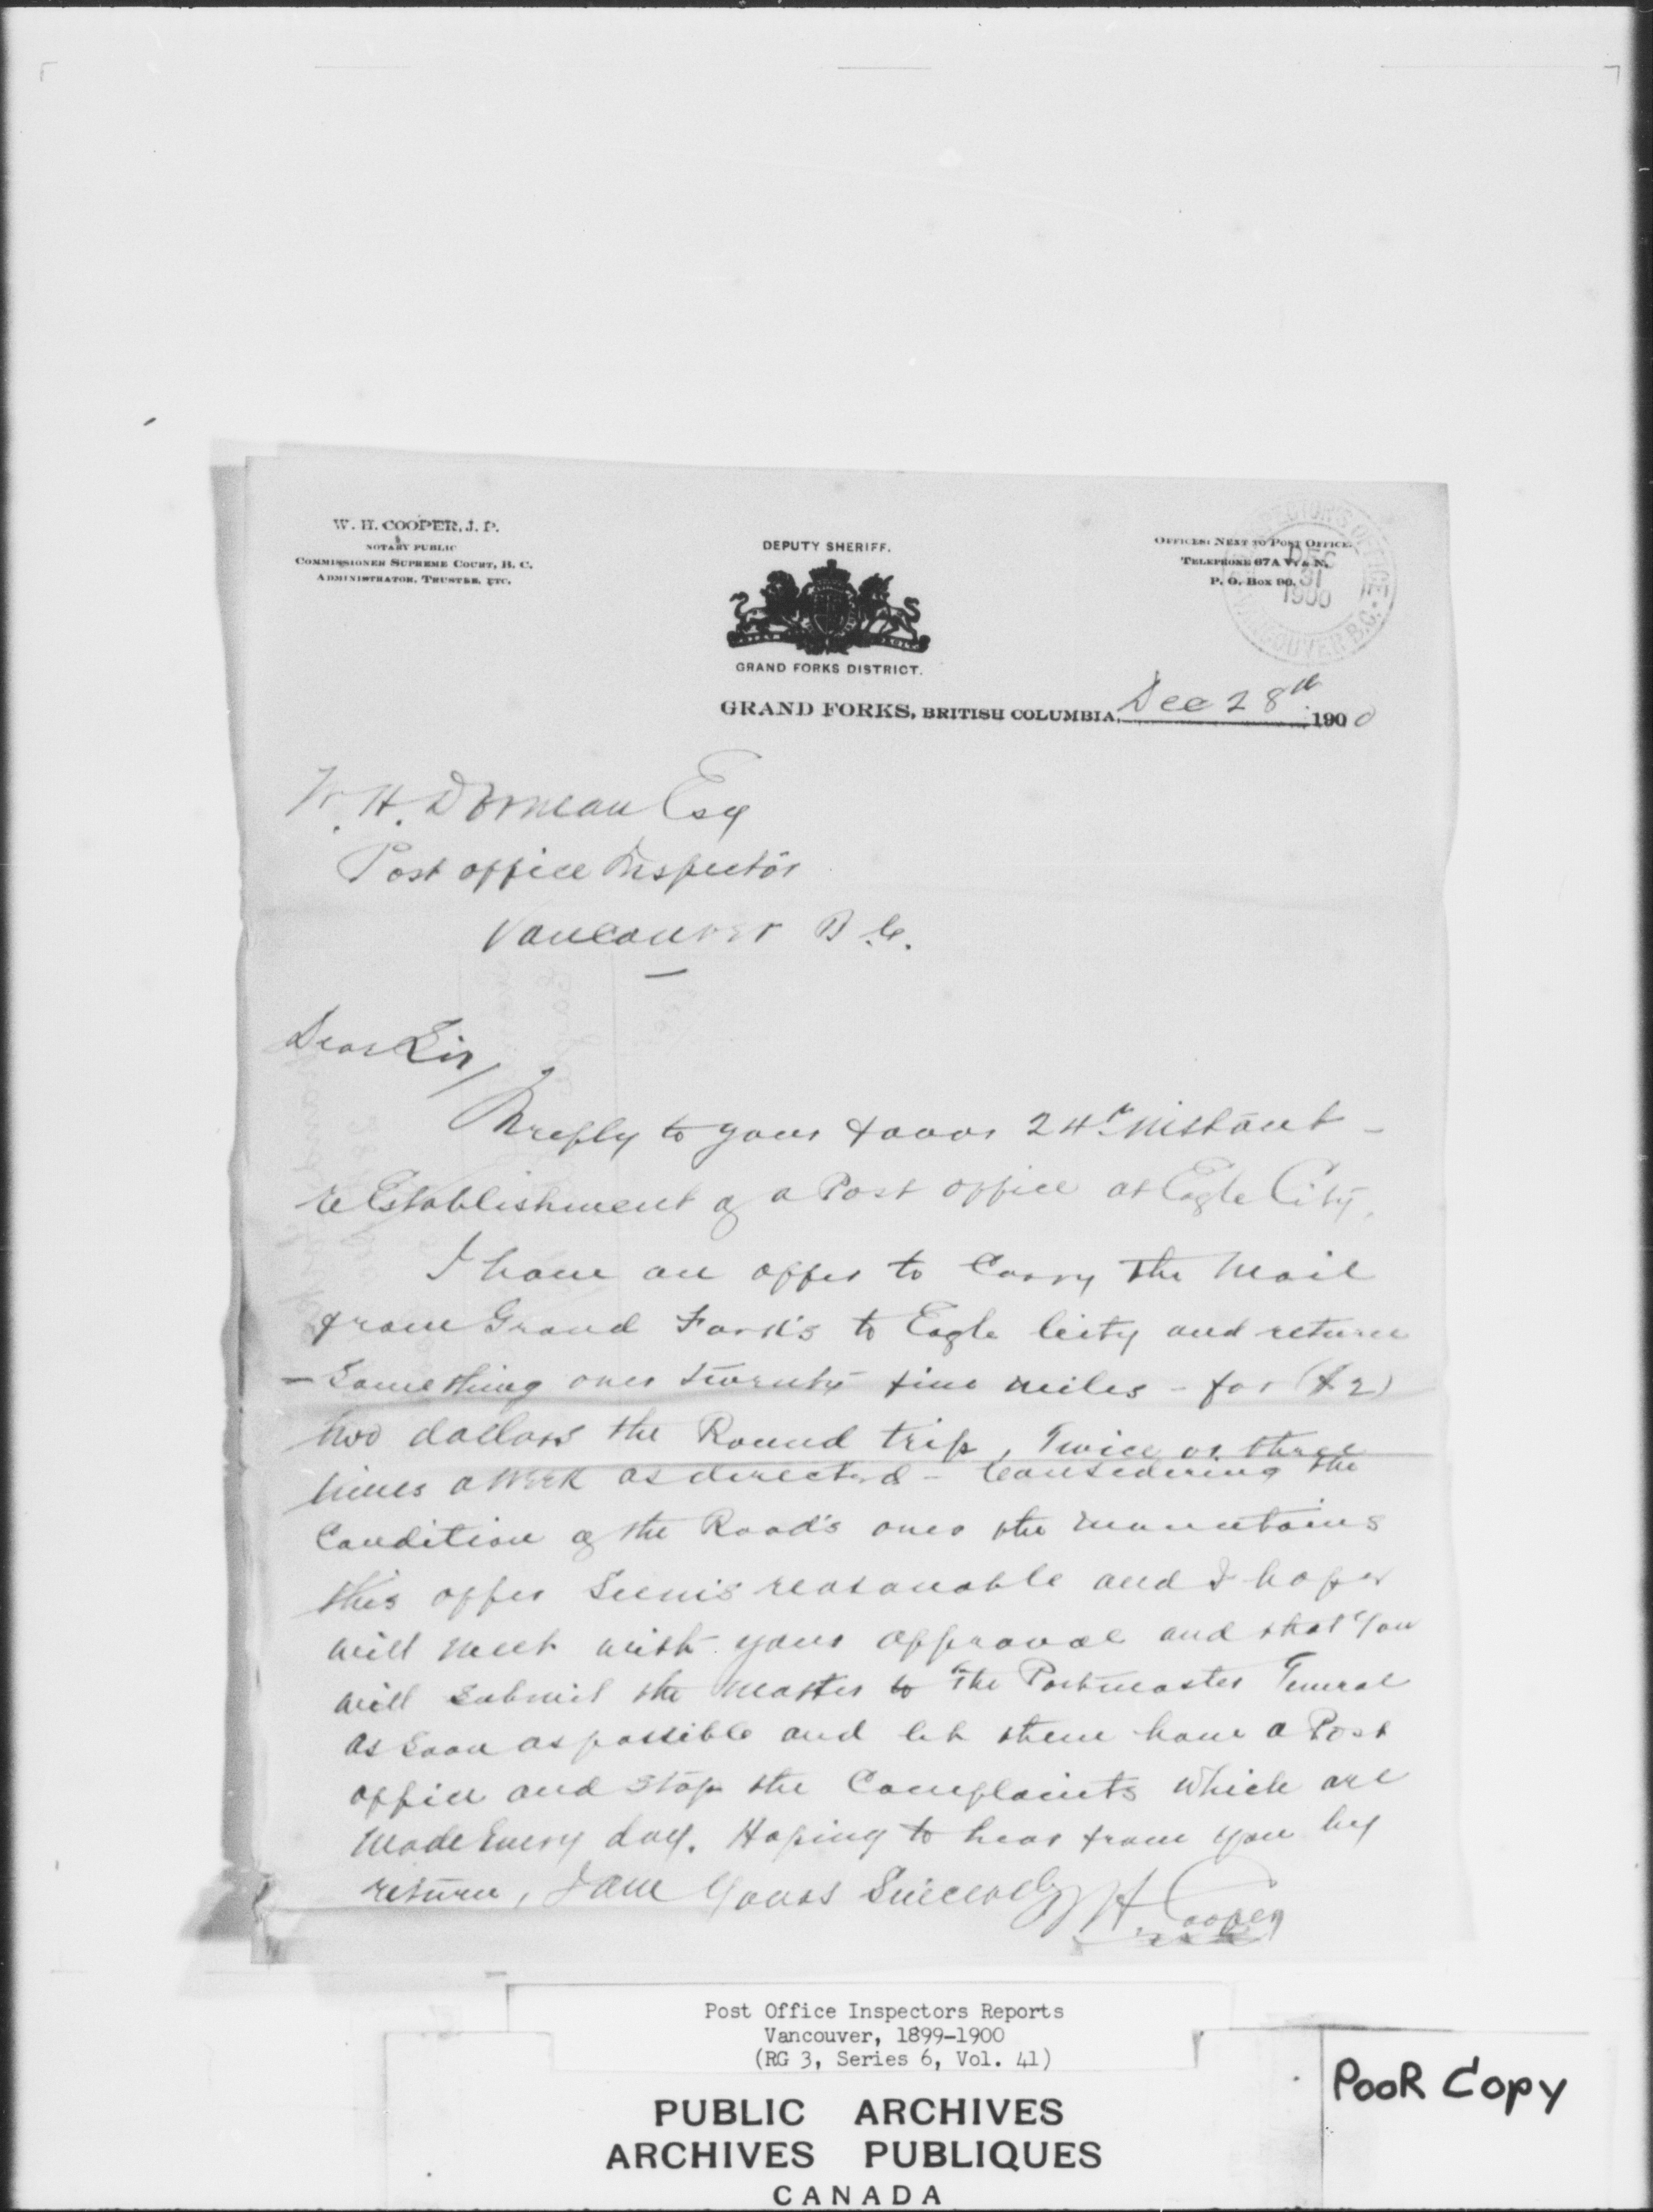 W. H. COOPER, J. P.
NOTARY PUBLIC
COMMISSIONER SUPREME COURT, B. C.
ADMINISTRATOR, TRUSTEE, ETC.
DEPUTY SHERIFF.
GRAND FORKS DISTRICT.
OFFICES: NEXT TO POST OFFICE.
TELEPHONE 67A V & N.
P. O. BOX 90.
INSPECTOR'S OFFICE
DEC
31
1900
VANCOUVER B.C.
GRAND FORKS, BRITISH COLUMBIA, Dec 28th 1900
W. H. Dorman Esq
Post office Inspector
Vancouver B.C.
Dear Sir/
In reply to your favor 24th instant -
re Establishment of a Post office at Eagle City.
I have an offer to Carry the Mail
from Grand Fork's to Eagle City and return
- Something over twenty five miles - for ($2)
two dollars the Round trip, Twice or three
times a week as directed - Considering the
Condition of the Road's over the mountains
this offer seems reasonable and I hope
will meet with your approval and that you
will submit the matter to the Postmaster General
as soon as possible and let them have a Post
office and stop the Complaints which are
made Every day. Hoping to hear from you by
return, I am Yours Sincerely
W H. Cooper
Post Office Inspectors Reports
Vancouver, 1899-1900
(RG 3, Series 6, Vol. 41)
PUBLIC ARCHIVES
ARCHIVES PUBLIQUES
CANADA
POOR COPY